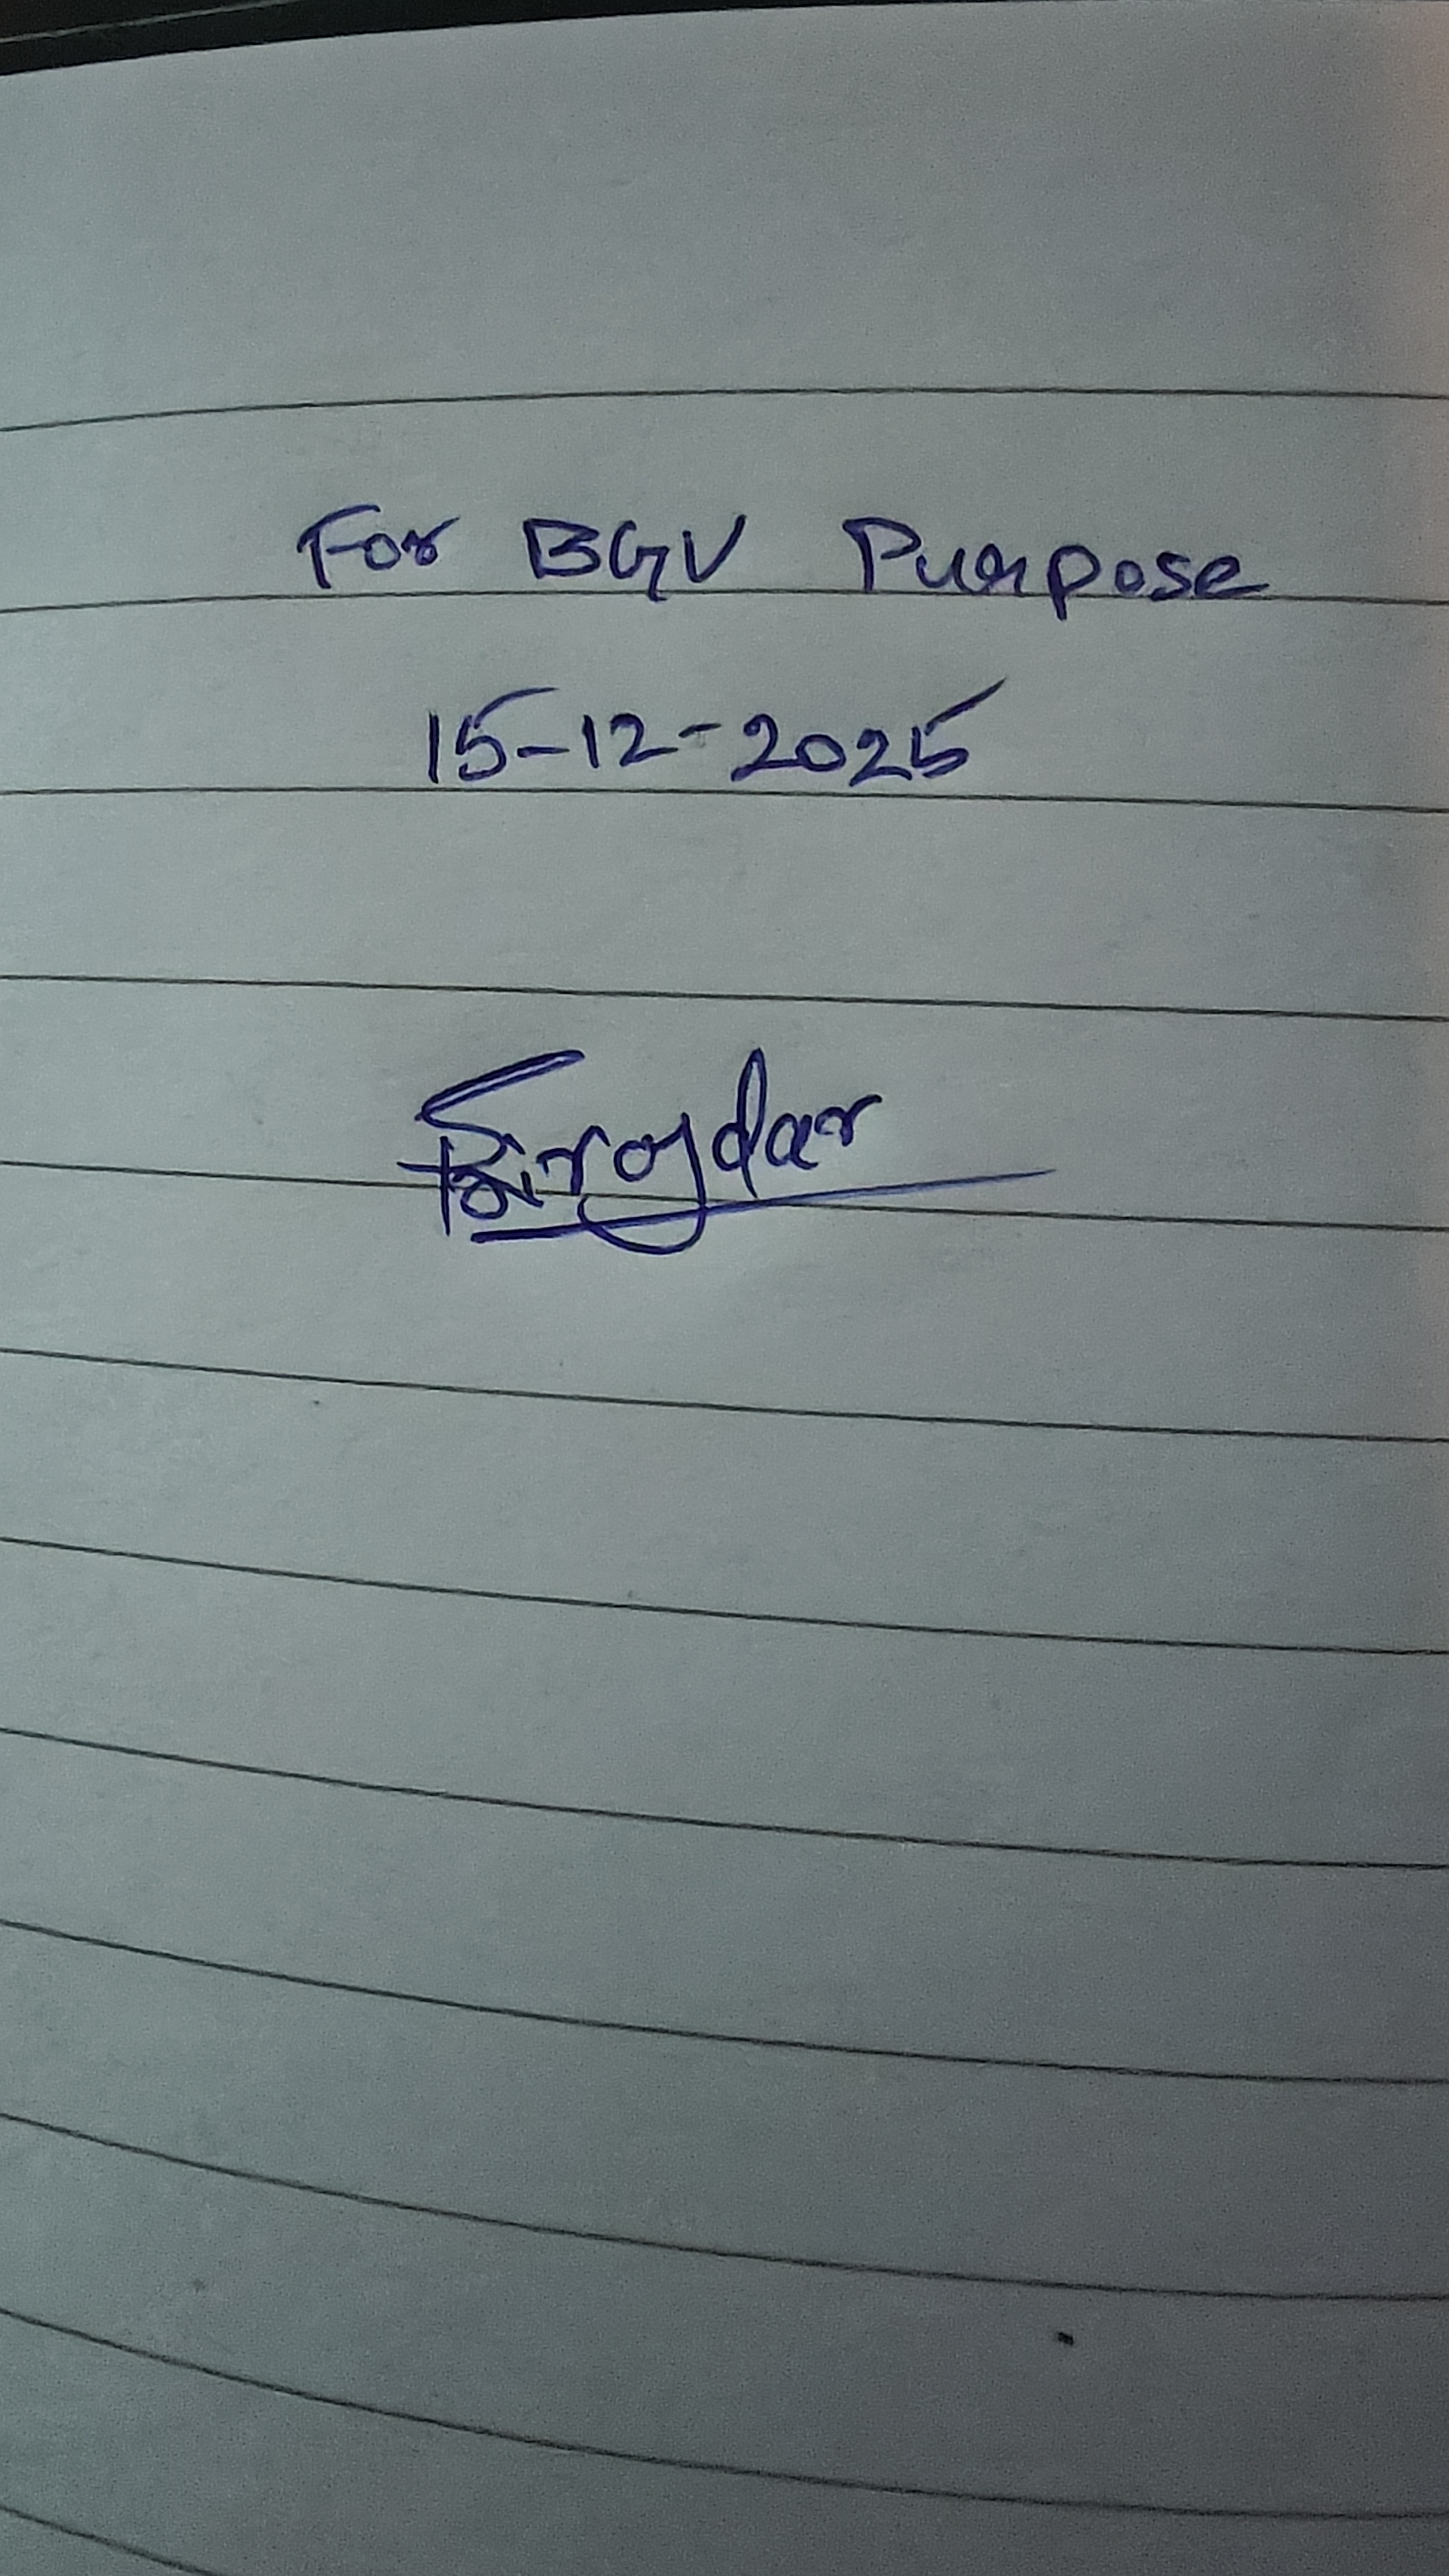 For BGV Purpose
15-12-2025